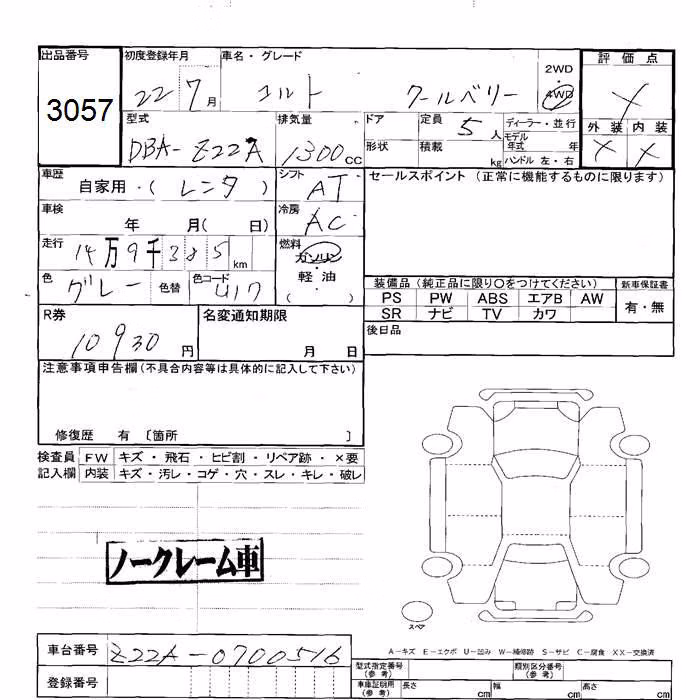 出品番号 初度登録年月 車名・グレード 評価点
3057 22 7月 コルト クールベリー 2WD 4WD
型式 排気量 ドア 定員 5人 ディーラー・並行 外装 内装
DBA-Z22A 1300cc 形状 積載 kg モデル年式 年
ハンドル 左・右
車歴 自家用・(レンタ) シフト AT セールスポイント (正常に機能するものに限ります)
車検 年 月( 日) 冷房 AC
走行 14万9千385km 燃料 ガソリン
軽・油
( )
色 グレー 色替 色コード U17
装備品 (純正品に限り○をつけてください) 新車保証書
PS PW ABS エアB AW 有・無
SR ナビ TV カワ
R券 10930円 名変通知期限 月 日 後日品
注意事項申告欄(不具合内容等は具体的に記入して下さい)
修復歴 有 〔箇所 〕
検査員 FW キズ・飛石・ヒビ割・リペア跡・×要
記入欄 内装 キズ・汚レ・コゲ・穴・スレ・キレ・破レ
ノークレーム車
スペア
A-キズ E-エクボ U-凹み W-補修跡 S-サビ C-腐食 XX-交換済
車台番号 Z22A-0700516
登録番号
型式指定番号(参考) 類別区分番号(参考)
車庫証明用(参考) 長さ cm 幅 cm 高さ cm